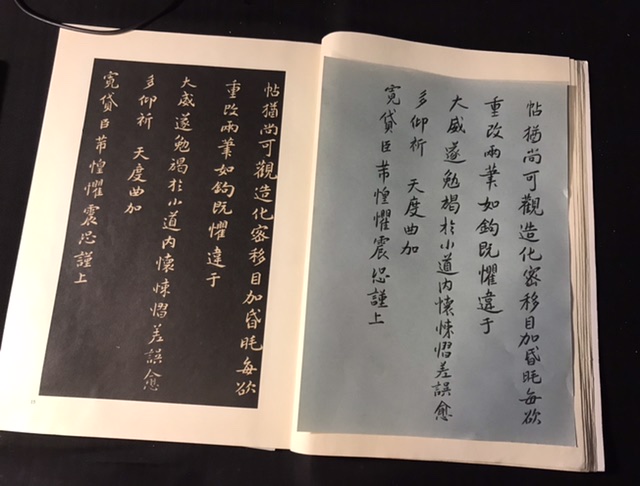 帖猶尚可觀造化密移目加昏眊每欲
重改兩葉如鈎既懼違于
大威遂勉竭於小道內懷悚慴差誤愈
多仰祈 天度曲加
寬貸臣芾惶懼震恐謹上
帖猶尚可觀造化密移目加昏眊每欲
重改兩葉如鈎既懼違于
大威遂勉竭於小道內懷悚慴差誤愈
多仰祈 天度曲加
寬貸臣芾惶懼震恐謹上